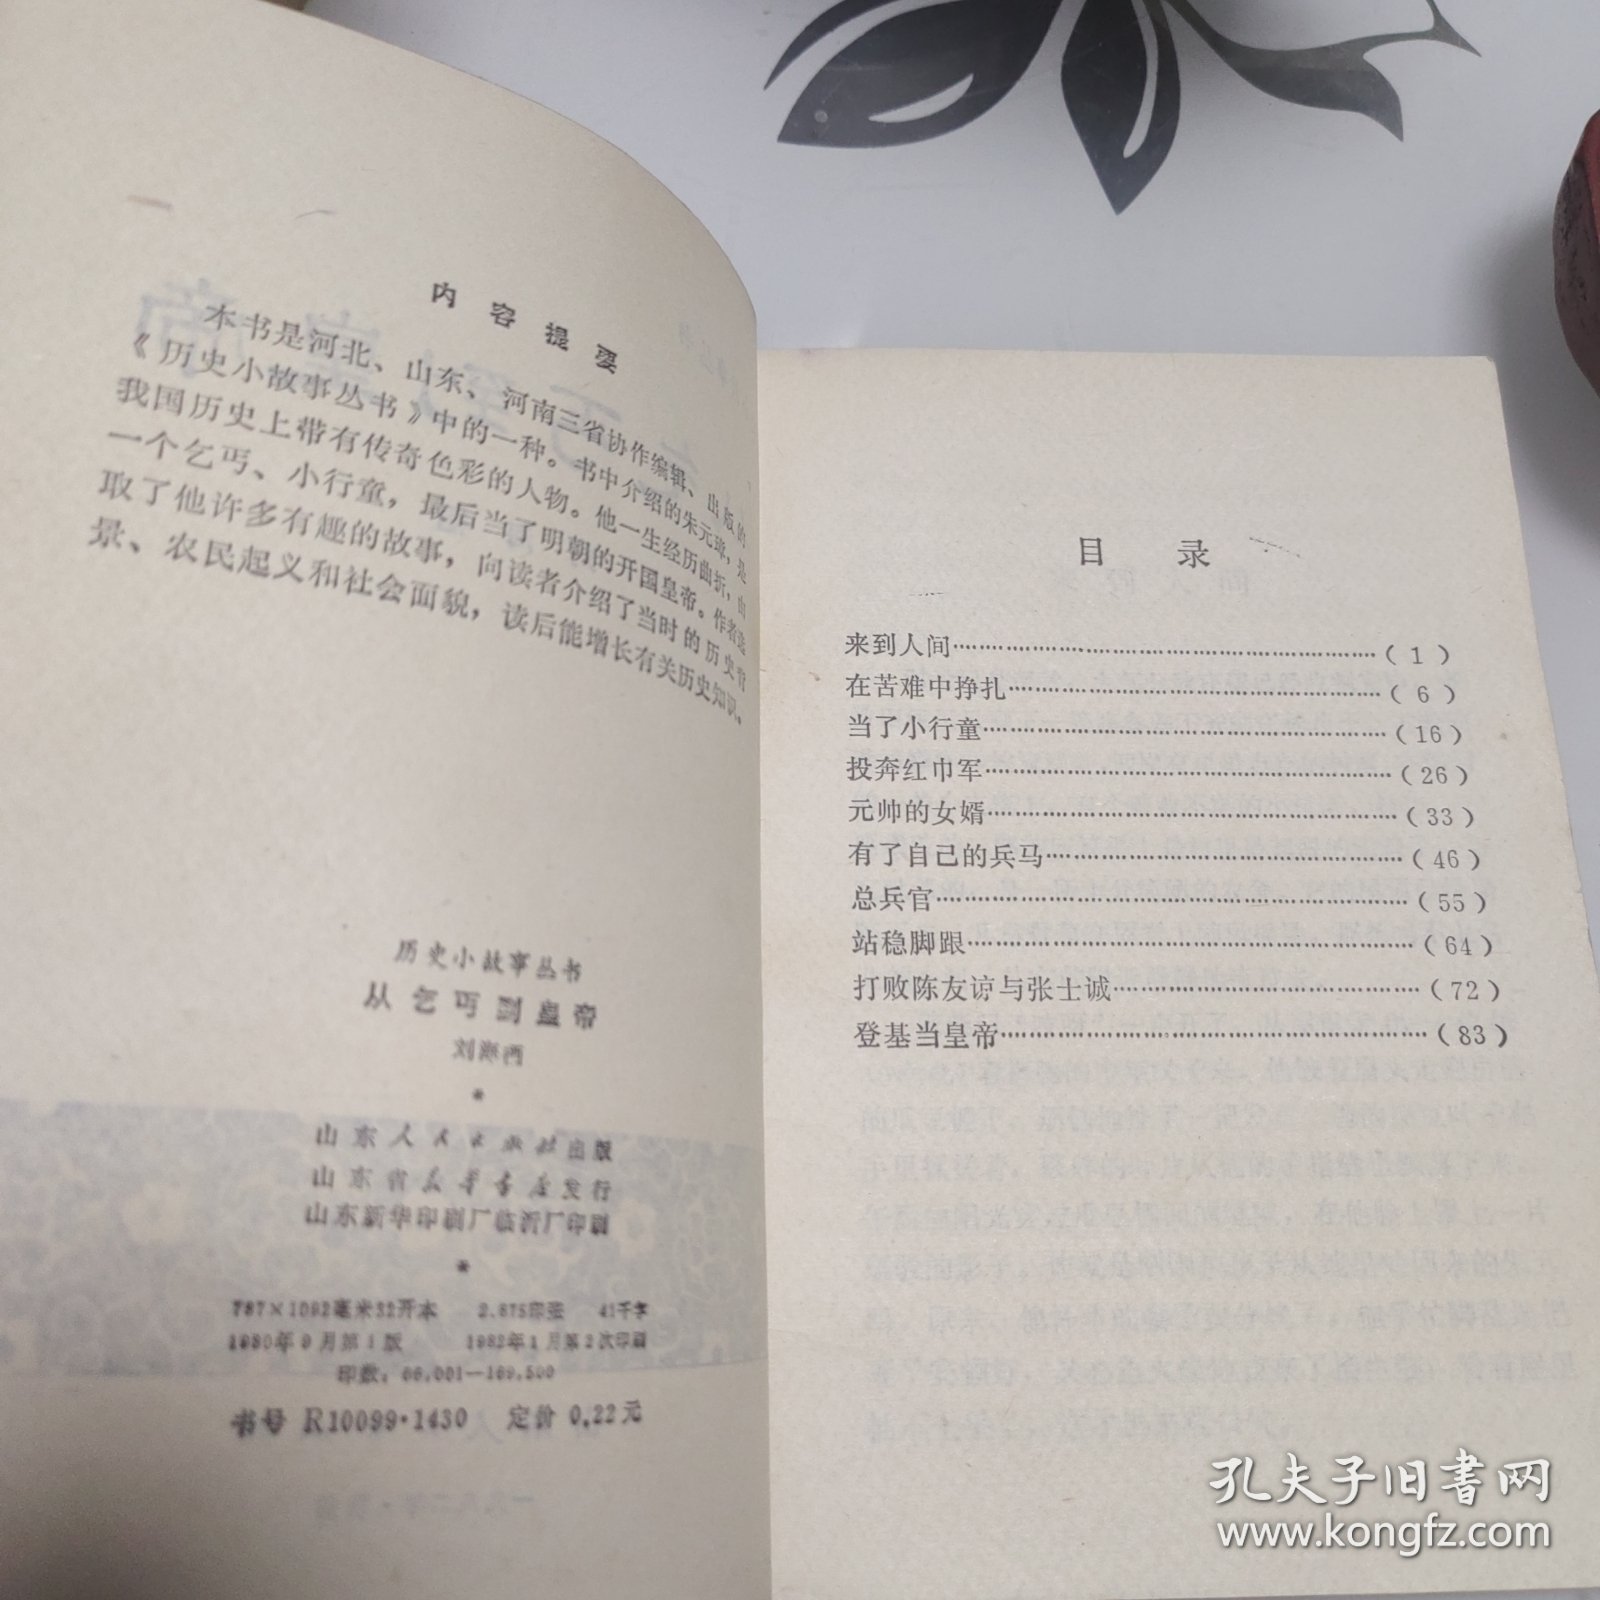 内容提要
本书是河北、山东、河南三省协作编辑、出版的
《历史小故事丛书》中的一种。书中介绍的朱元璋，是
我国历史上带有传奇色彩的人物。他一生经历曲折，由
一个乞丐、小行童，最后当了明朝的开国皇帝。作者选
取了他许多有趣的故事，向读者介绍了当时的历史背
景、农民起义和社会面貌，读后能增长有关历史知识。
历史小故事丛书
从乞丐到皇帝
刘海西
*
山东人民出版社出版
山东省新华书店发行
山东新华印刷厂临沂厂印刷
*
787×1092毫米32开本 2.875印张 41千字
1980年9月第1版 1982年1月第2次印刷
印数：66,001—169,500
书号 R10099·1430 定价 0.22元
目录
来到人间……………………………………（1）
在苦难中挣扎………………………………（6）
当了小行童…………………………………（16）
投奔红巾军…………………………………（26）
元帅的女婿…………………………………（33）
有了自己的兵马……………………………（46）
总兵官………………………………………（55）
站稳脚跟……………………………………（64）
打败陈友谅与张士诚………………………（72）
登基当皇帝…………………………………（83）
孔夫子旧书网
www.kongfz.com